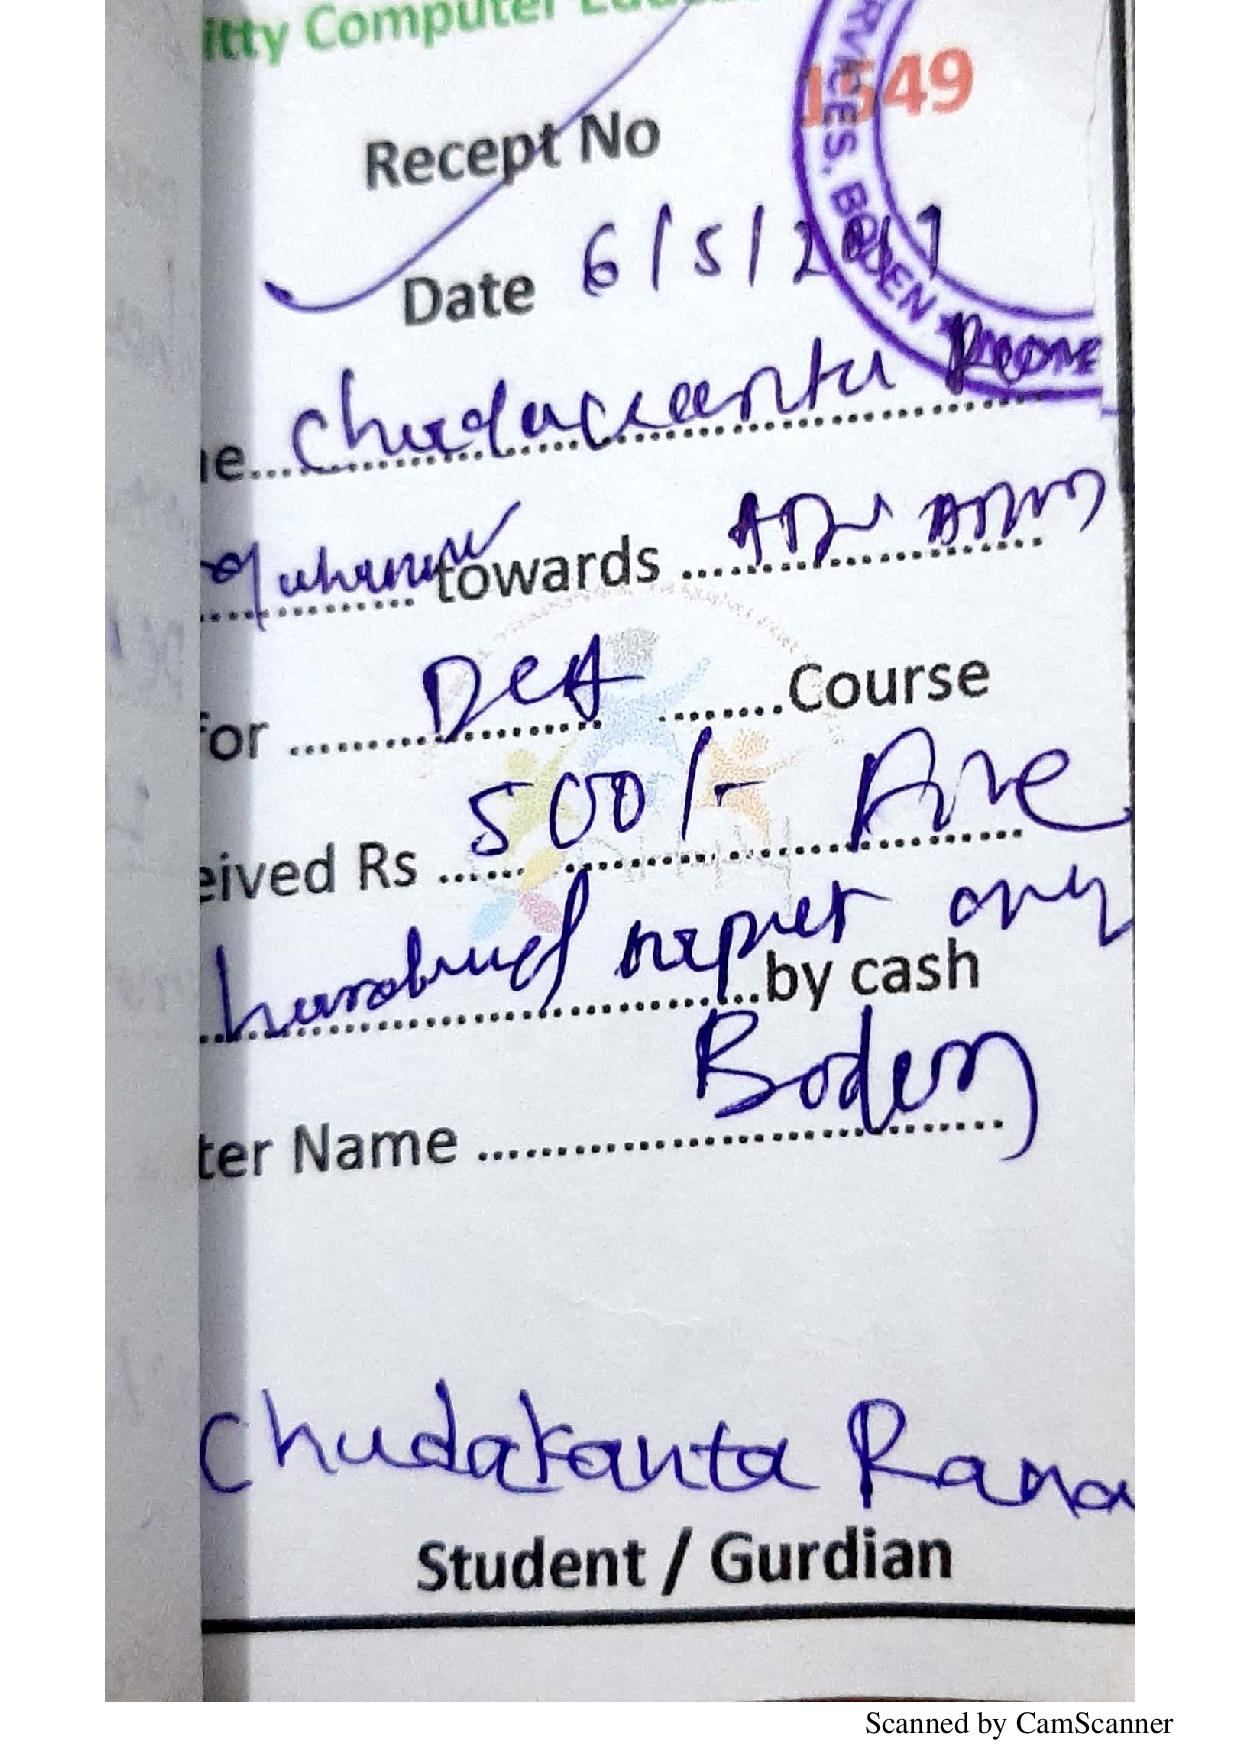 itty Computer
1549
Recept No
Date 6/5/2017
RVICES, BODEN
e... Chudacanta
towards
for DCA Course
eived Rs 500/- Five
hundred rupees only by cash
ter Name Boden
Chudakanta Rana
Student / Gurdian
Scanned by CamScanner